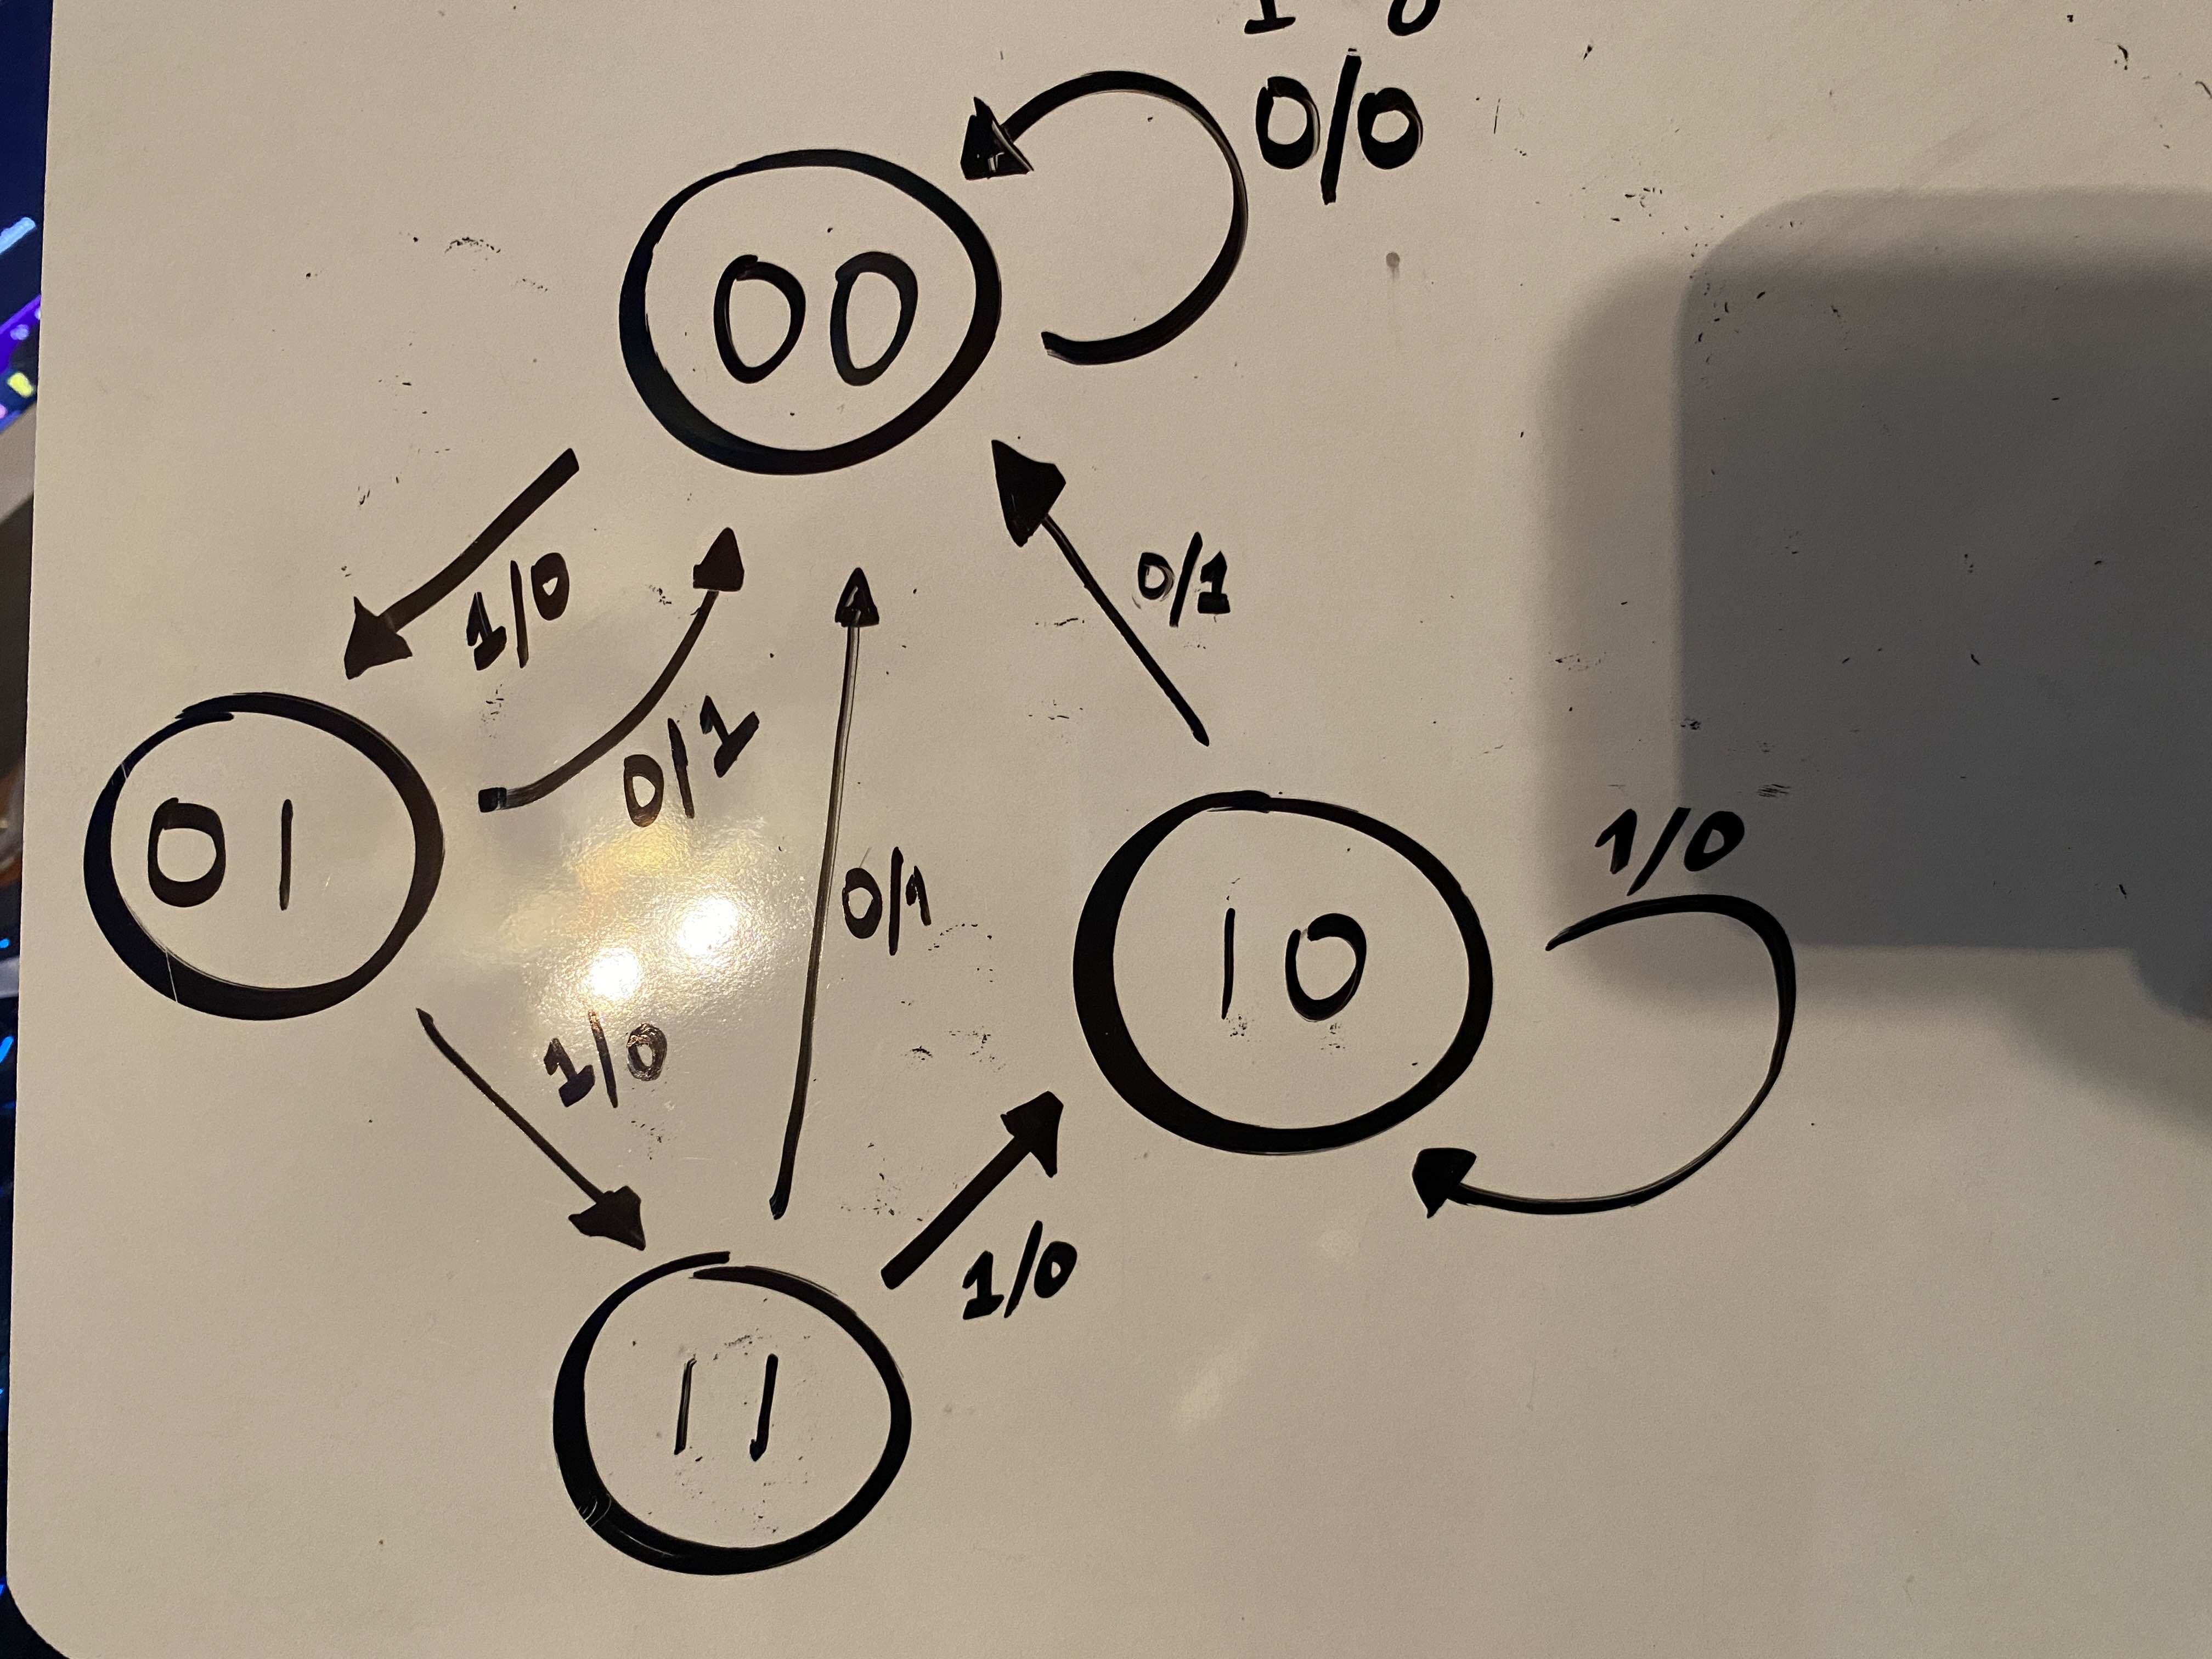 0/0
00
1/0
0/1
0/1
01
0/1
1/0
10
1/0
1/0
11